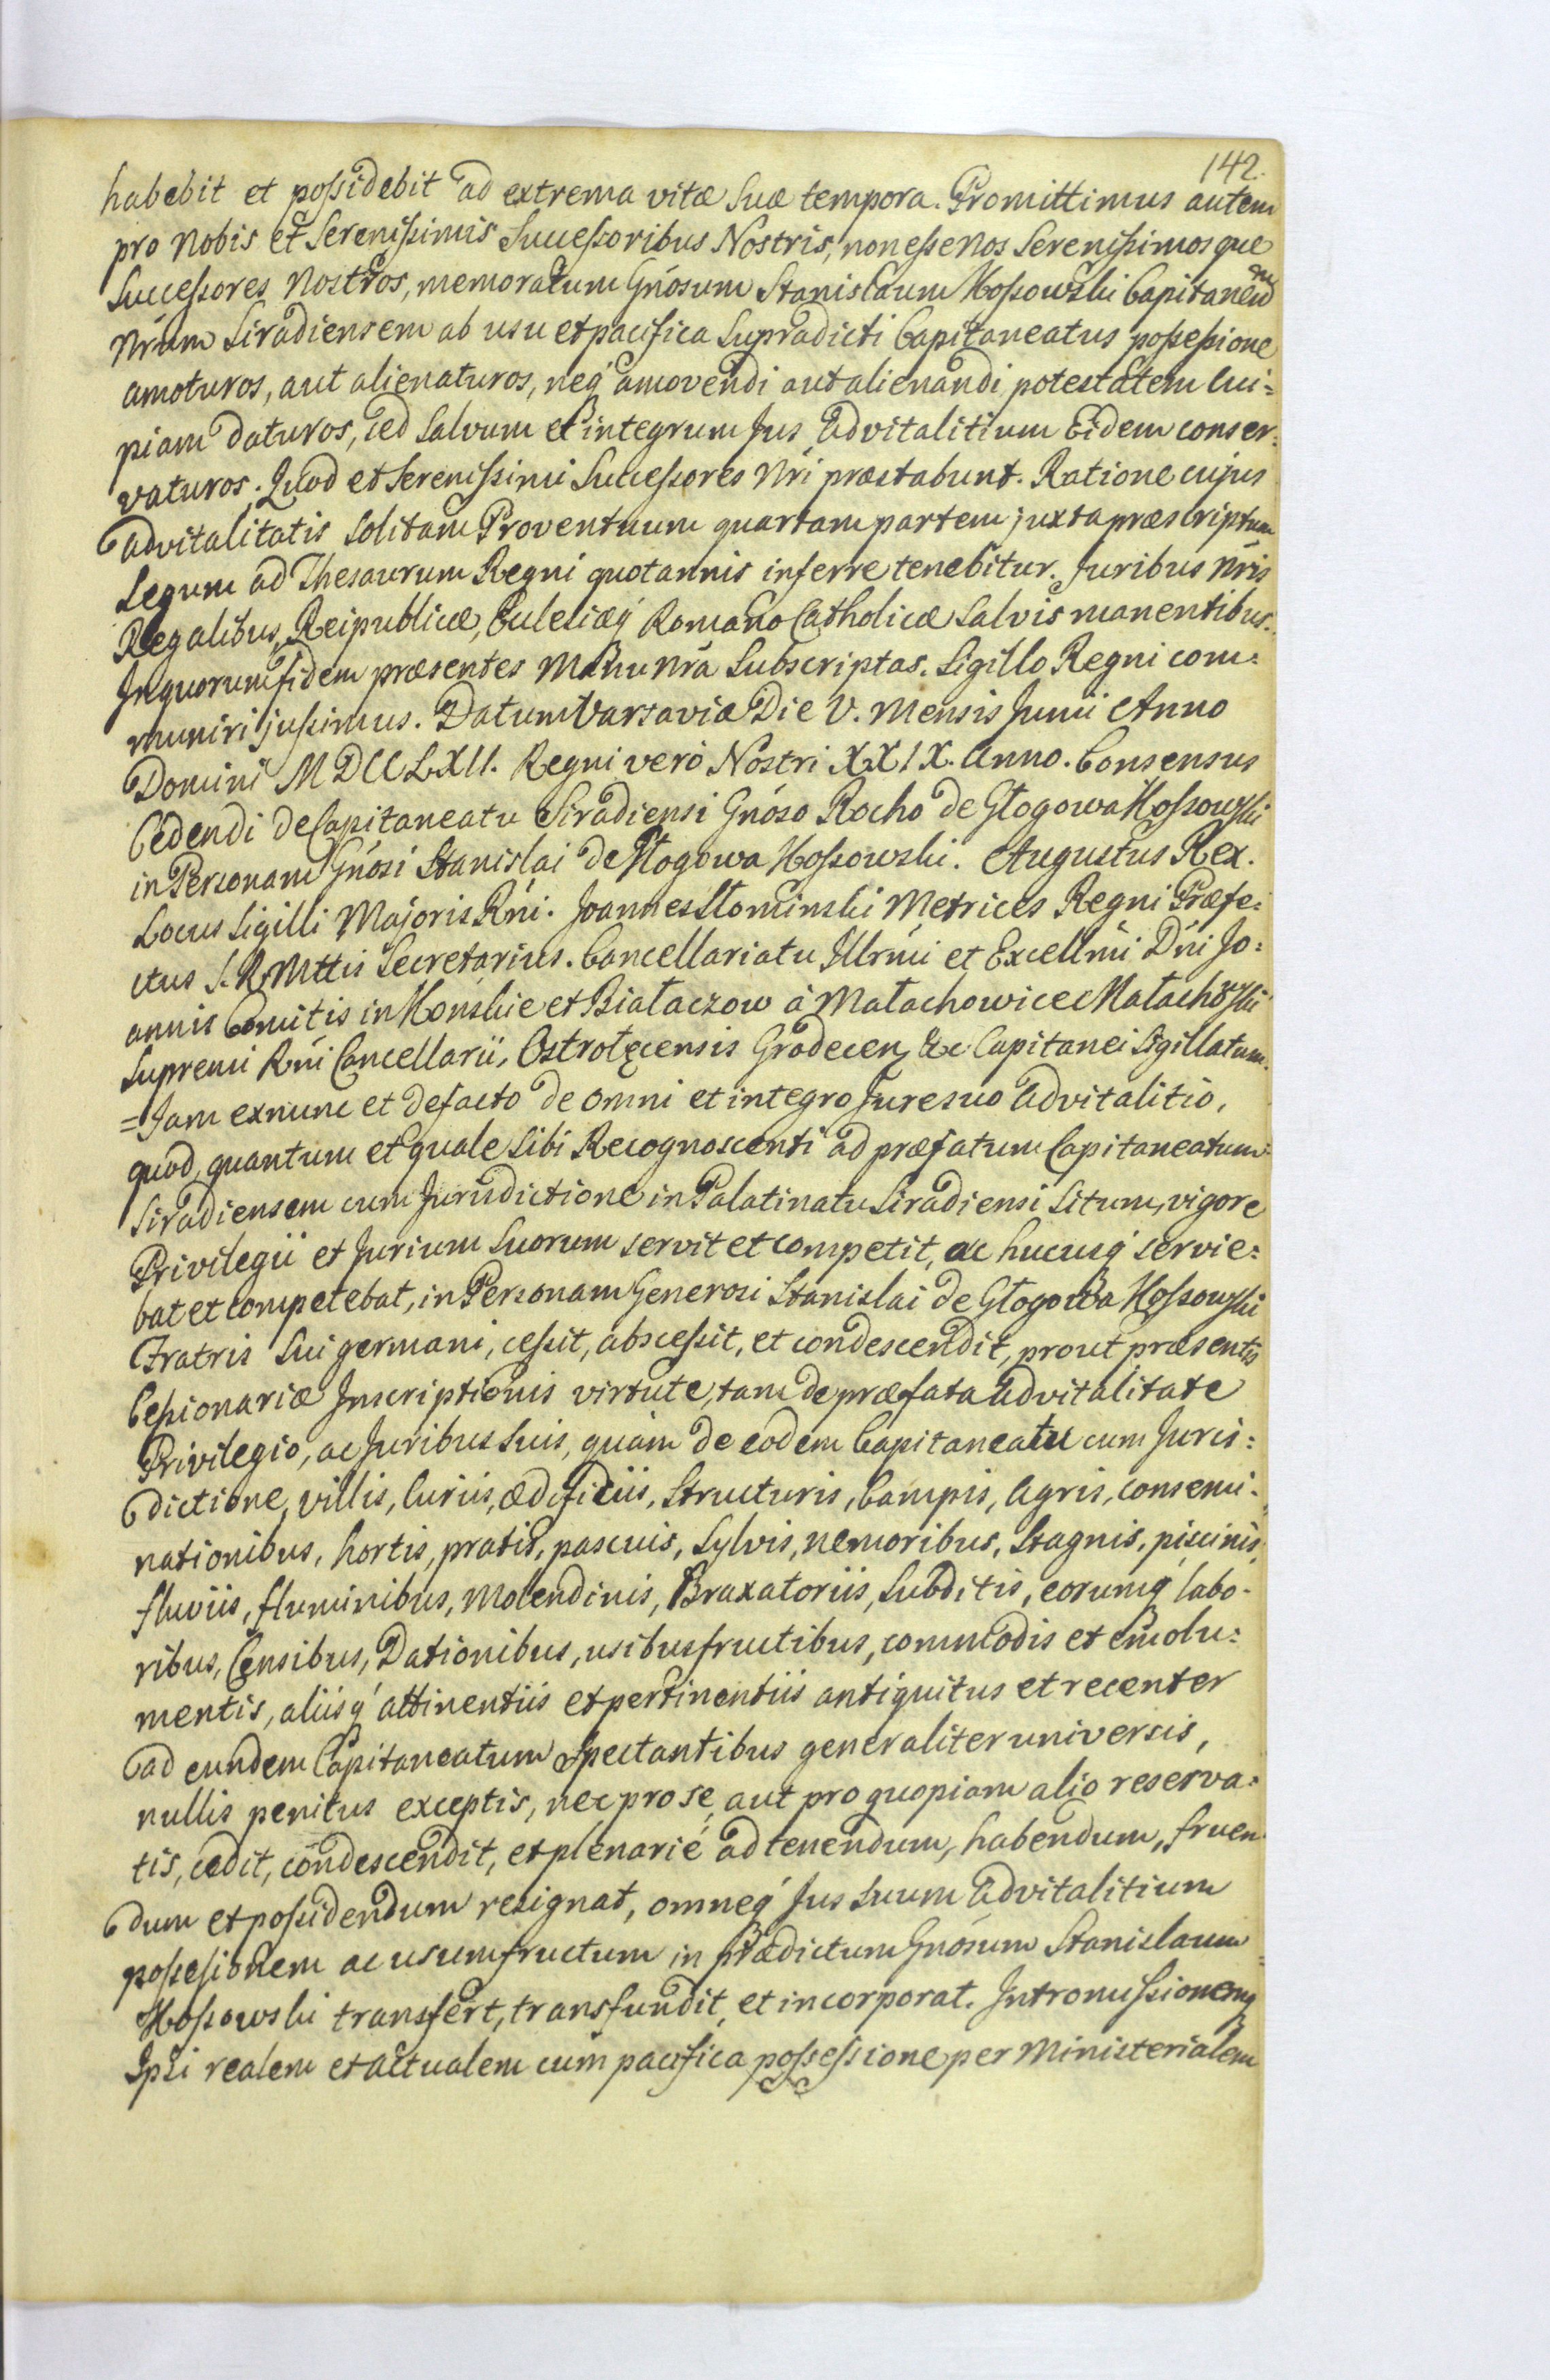 142.
habebit et possidebit ad extrema vitæ suæ tempora. Promittimus autem
pro Nobis et Serenissimis Successoribus Nostris, non esse Nos Serenissimosque
Successores Nostros, memoratum Gńosum Stanislaum Kossowski Capitaneum
Nŕum Siradiensem ab usu et pacifica Supradicti Capitaneatus possessione
amoturos, aut alienaturos, neq́ amovendi aut alienandi potestatem cui=
piam daturos, sed salvum et integrum Jus Advitalitium Eidem conser=
vaturos. Quod et Serenissimi Successores Nŕi præstabunt. Ratione cujus
advitalitatis solitam Proventuum quartam partem juxta præscriptum
Legum ad Thesaurum Regni quotannis inferre tenebitur. Juribus Nŕis
Regalibus, Reipublicæ, Ecclesiæq́ Romano Catholicæ salvis manentibus.
In quorum fidem præsentes Manu Nŕa Subscriptas. Sigillo Regni com=
muniri jussimus. Datum Varsaviæ Die V. Mensis Junii Anno
Domini MDCCLXII. Regni verò Nostri XXIX. Anno. Consensus
Cedendi de Capitaneatu Siradiensi Gńoso Rocho de Głogowa Kossowski
in Personam Gńosi Stanislai de Głogowa Kossowski. Augustus Rex.
Locus Sigilli Majoris Rńi. Joannes Słomiński Metrices Regni Præfe=
ctus S. R. Mttis Secretarius. Cancellariatu Illŕmi et Excellḿi Dńi Jo=
annis Comitis in Końskie et Białaczow à Małachowice Małachowski
Supremi Rńi Cancellarii, Ostrołęcensis Grodecen, &c Capitanei Sigillatum.
= Jam exnunc et defacto de omni et integro Jure suo Advitalitio,
quod, quantum et quale sibi Recognoscenti ad præfatum Capitaneatum
Siradiensem cum Jurisdictione in Palatinatu Siradiensi Situm, vigore
Privilegii et Jurium Suorum servit et competit, ac hucusq́ servie=
bat et competebat, in Personam Generosi Stanislai de Głogowa Kossowski
Fratris Sui germani, cessit, abscessit, et condescendit, prout præsentis
Cessionariæ Inscriptionis virtute, tam de præfata Advitalitate
Privilegio, ac Juribus suis, quàm de eodem Capitaneatu cum Juris=
dictione, villis, Curiis, ædificiis, Structuris, Campis, Agris, consemi=
nationibus, hortis, pratis, pascuis, Sylvis, nemoribus, Stagnis, piscinis,
fluviis, fluminibus, Molendinis, Braxatoriis, Subditis, eorumq́ labo=
ribus, Censibus, Dationibus, usibusfructibus, commodis et emolu=
mentis, aliisq́ attinentiis et pertinentiis antiquitus et recenter
ad eundem Capitaneatum Spectantibus generaliter universis,
nullis penitus exceptis, nec pro se, aut pro quopiam alio reserva=
tis, cedit, condescendit, et plenariè ad tenendum, habendum, fruen
dum et possidendum resignat, omneq́ Jus suum Advitalitium
possessionem ac usumfructum in prædictum Gńosum Stanislaum
Kossowski transfert, transfundit, et incorporat. Intromissionemq
Ipsi realem et actualem cum pacifica possessione per Ministerialem